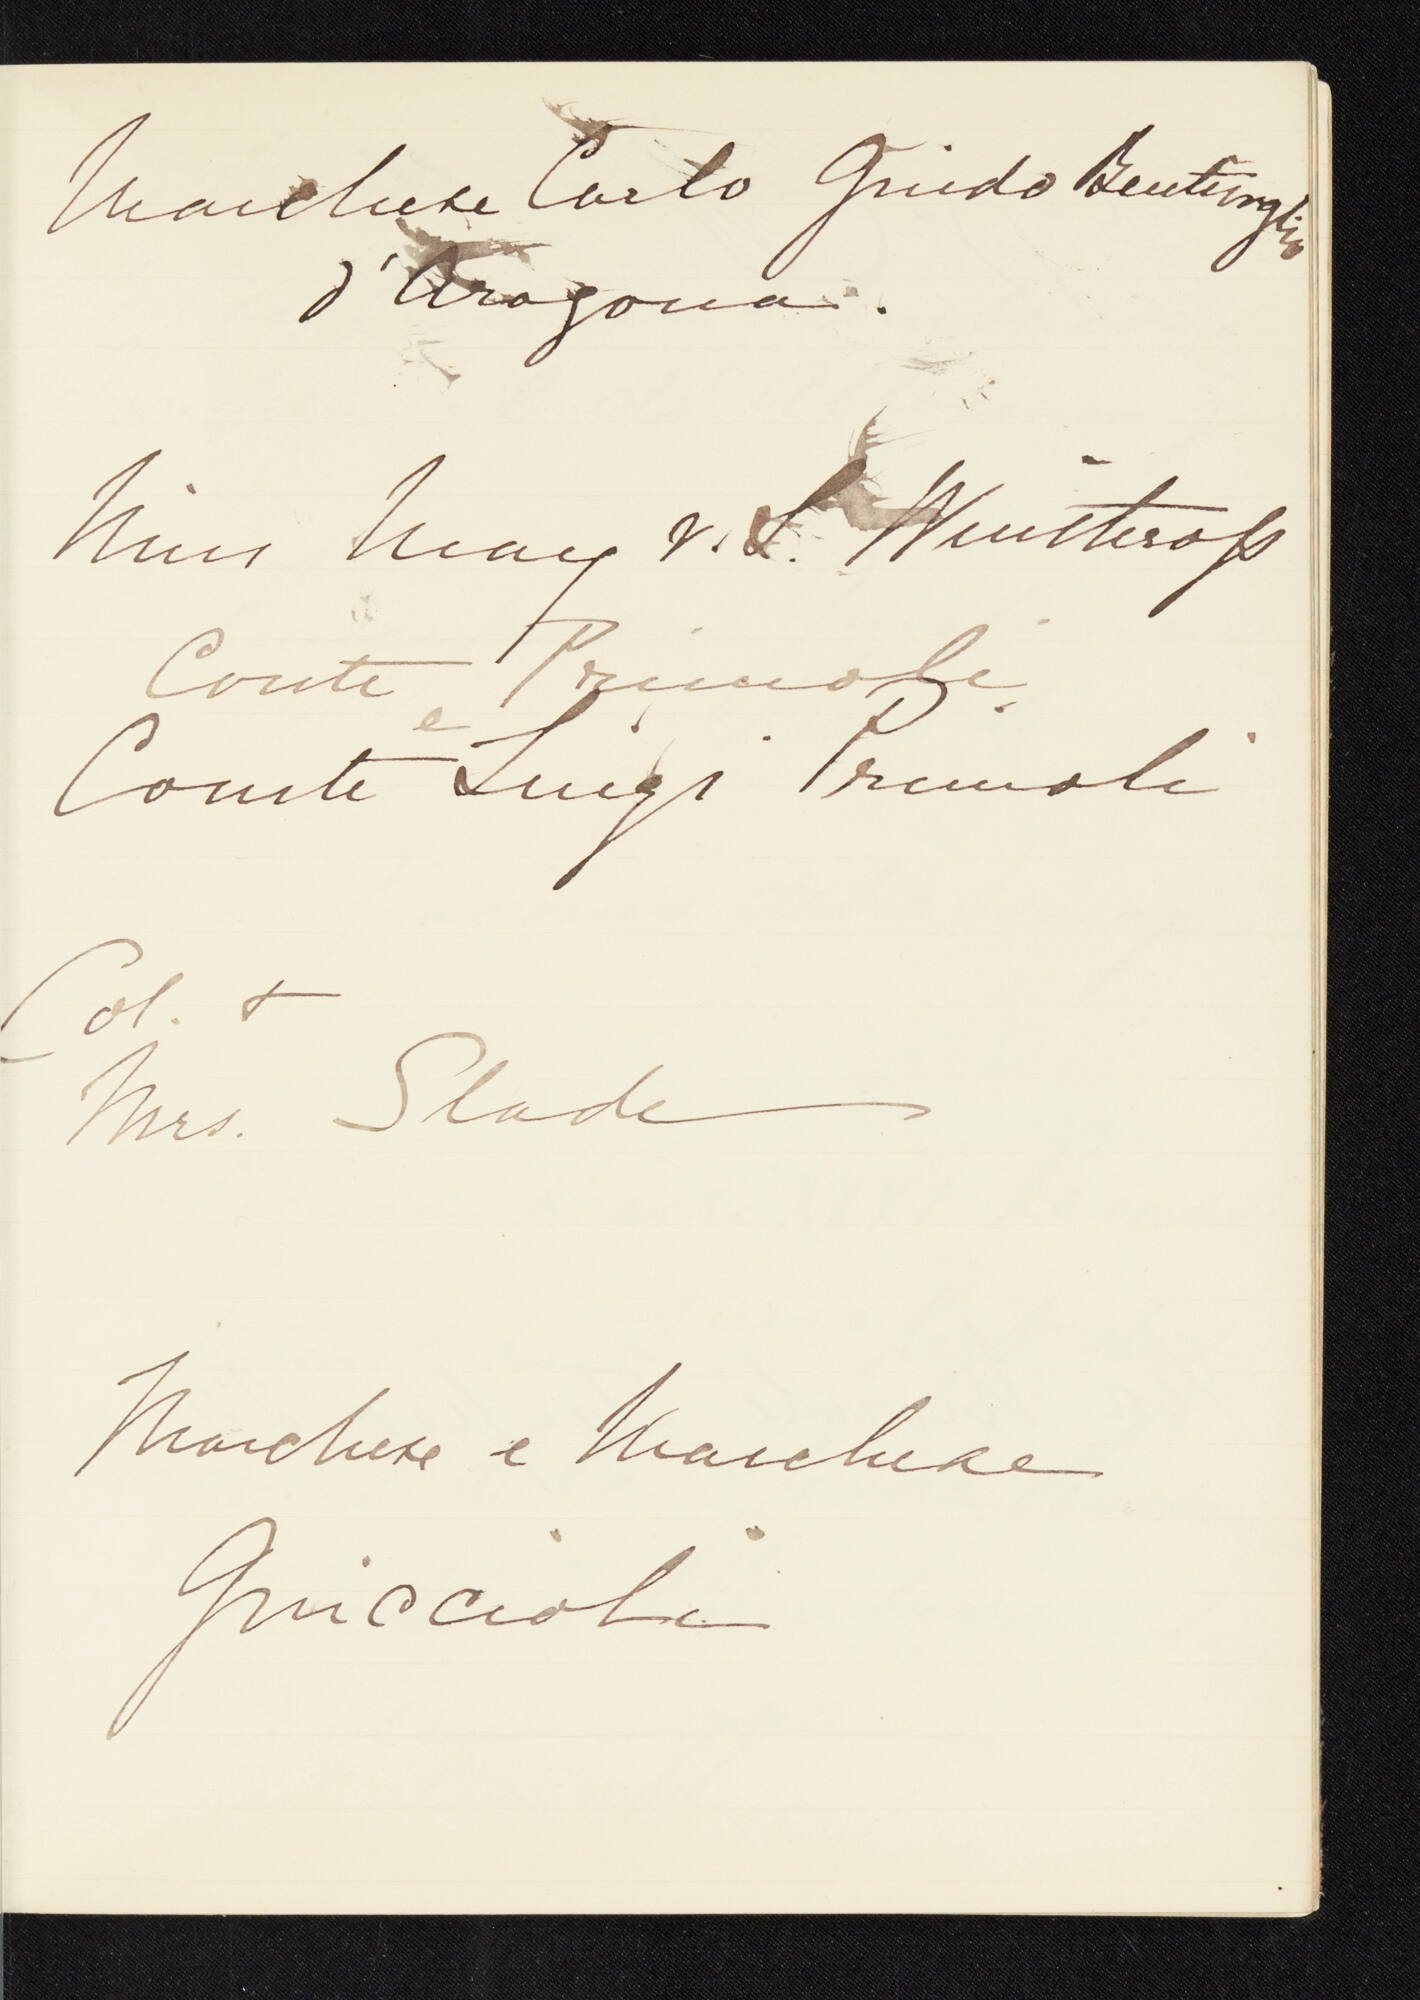 Marchese Carlo Guido Bentivoglio
d'Aragona.
Miss May v. L. Winthrop
Conte Primoli,
e
Conte Luigi Primoli
Col. +
Mrs. Slade
Marchese e Marchese
Guiccioli